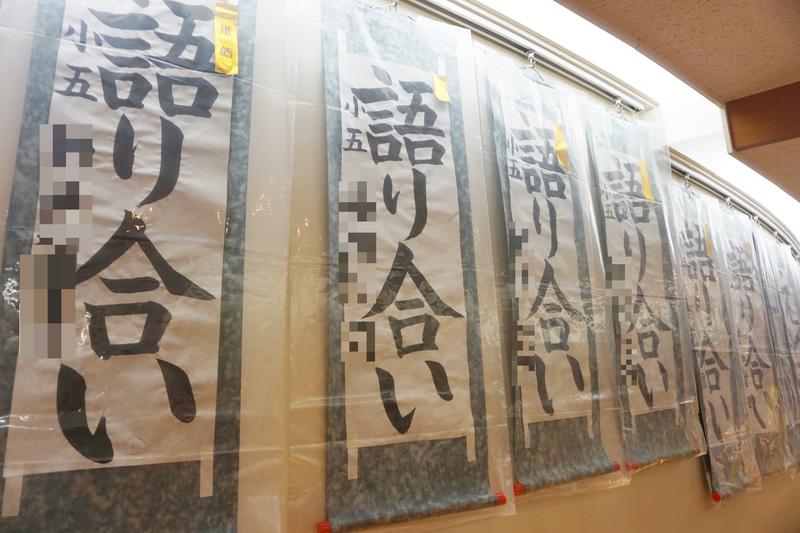 推薦
語り合い
小五
語り合い
小五
語り合い
小五
語り合い
小五
語り合い
語り合い